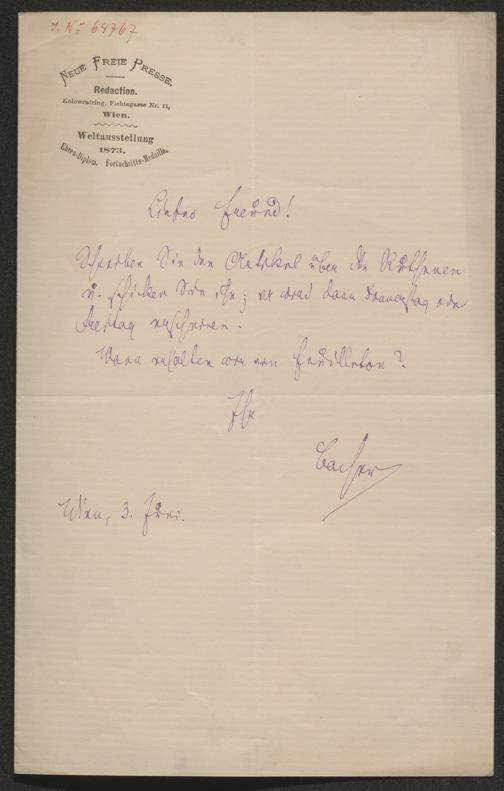 J. No 64767
NEUE FREIE PRESSE.
Redaction.
Kolowratring, Fichtegasse Nr. 11,
Wien.
Weltausstellung
1873.
Ehren-Diplom. Fortschritts-Medaille.
Liebster Freund!
Schreiben Sie den Artikel über die Ruthenen
u. schicken Sie ihn; er wird dann Donnerstag oder
Freitag erscheinen.
Wann erhalten wir ein Feuilleton?
Ihr
Bacher
Wien, 3. Juni.